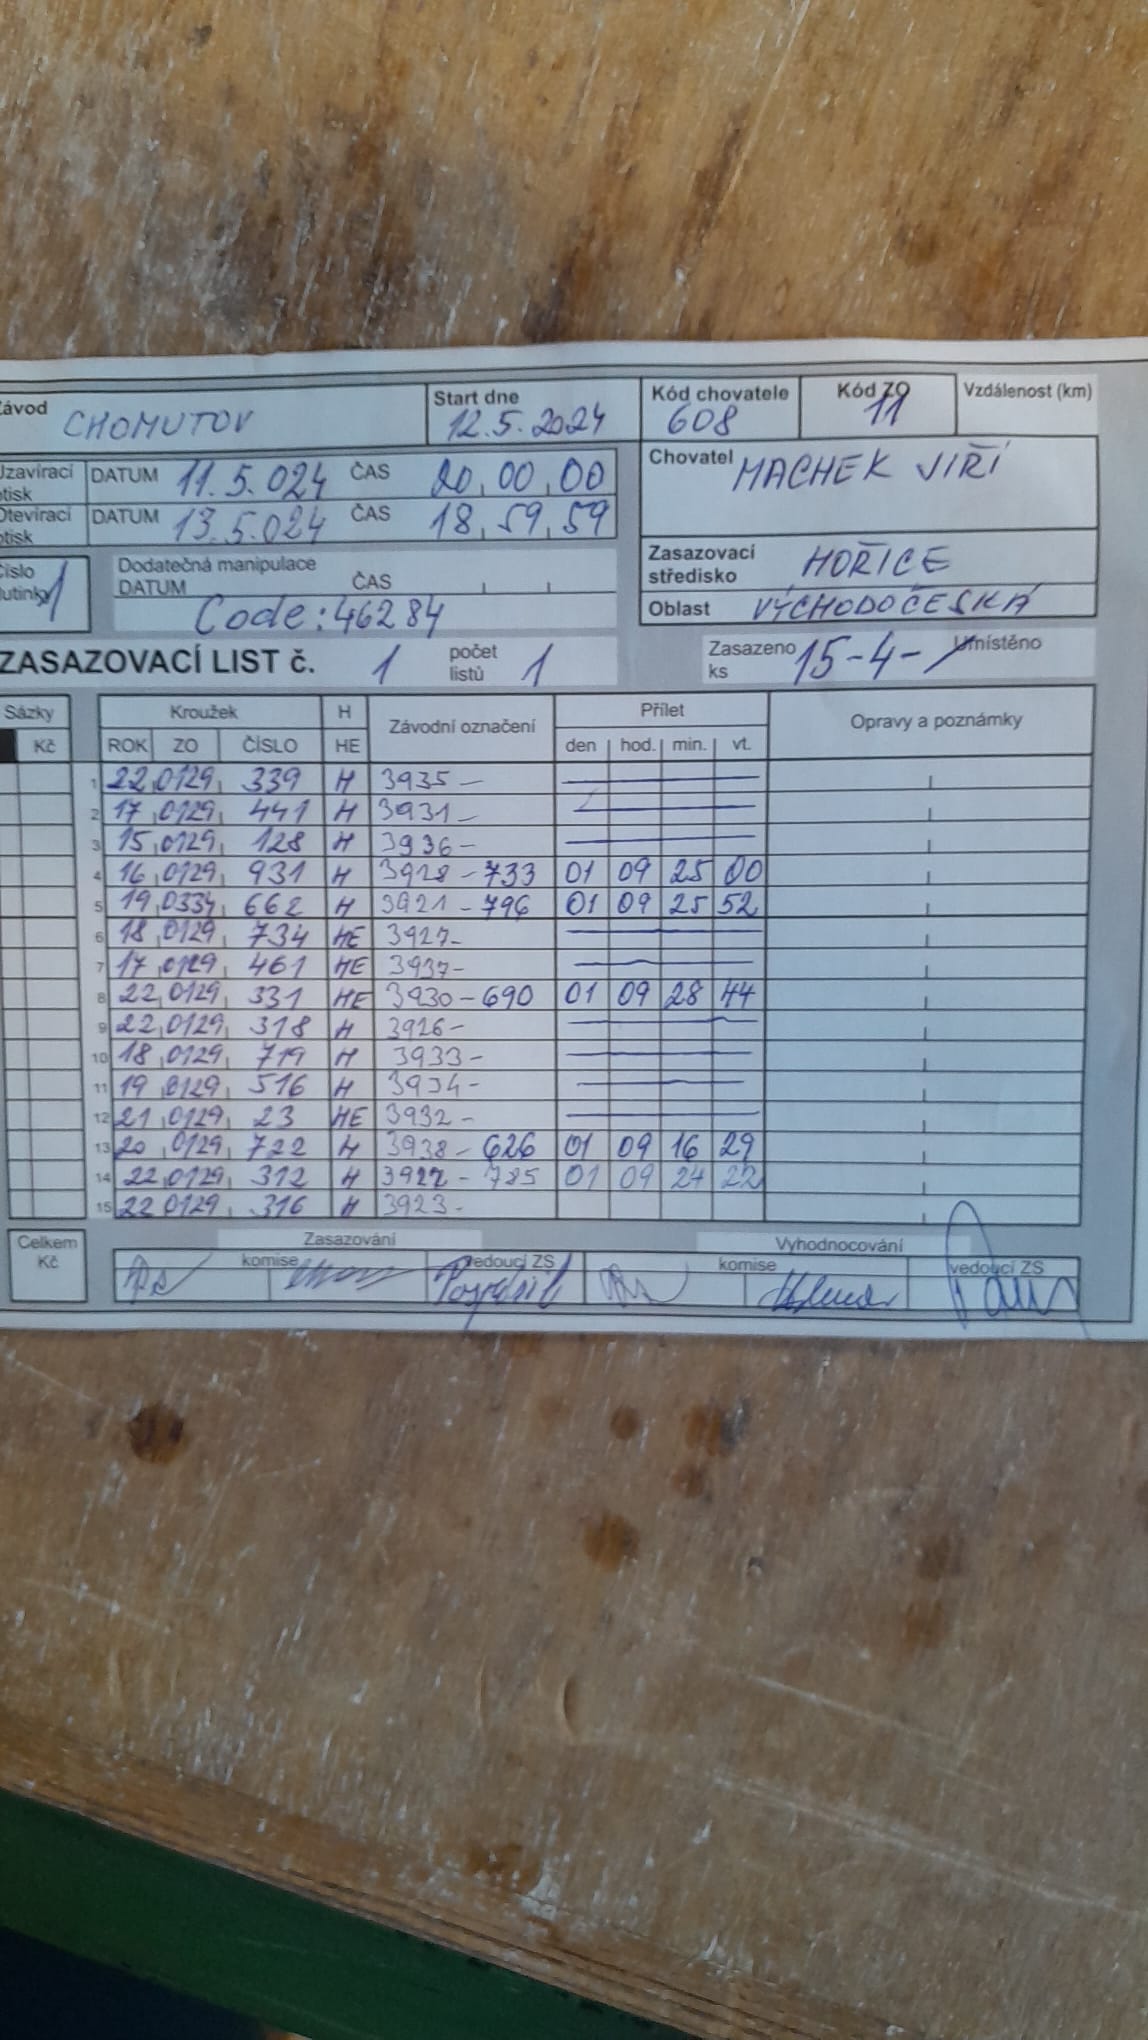 Závod CHOMUTOV Start dne 12.5.2024 Kód chovatele 608 Kód ZO 11 Vzdálenost (km)
Uzavírací otisk DATUM 11.5.024 ČAS 20,00,00
Otevírací otisk DATUM 13.5.024 ČAS 18,59,59
Chovatel MACHEK JIŘÍ
Číslo 1
Dodatečná manipulace
DATUM ČAS
Code:46284
Zasazovací středisko HOŘICE
Oblast VÝCHODOČESKÁ
ZASAZOVACÍ LIST č. 1 počet listů 1 Zasazeno ks 15-4- Umístěno
Sázky Kroužek H Závodní označení Přílet Opravy a poznámky
Kč ROK ZO ČÍSLO HE den hod. min. vt.
1 22 0129 339 H 3935 -
2 17 0129 441 H 3931 -
3 15 0129 128 H 3936 -
4 16 0129 931 H 3928 - 733 01 09 25 00
5 19 0334 662 H 3921 - 796 01 09 25 52
6 18 0129 734 HE 3927 -
7 17 0129 461 HE 3937 -
8 22 0129 331 HE 3930 - 690 01 09 28 44
9 22 0129 318 H 3926 -
10 18 0129 719 H 3933 -
11 19 0129 516 H 3934 -
12 21 0129 23 HE 3932 -
13 20 0129 722 H 3938 - 626 01 09 16 29
14 22 0129 312 H 3922 - 785 01 09 24 22
15 22 0129 316 H 3923 -
Celkem Kč
Zasazování Vyhodnocování
komise vedoucí ZS komise vedoucí ZS